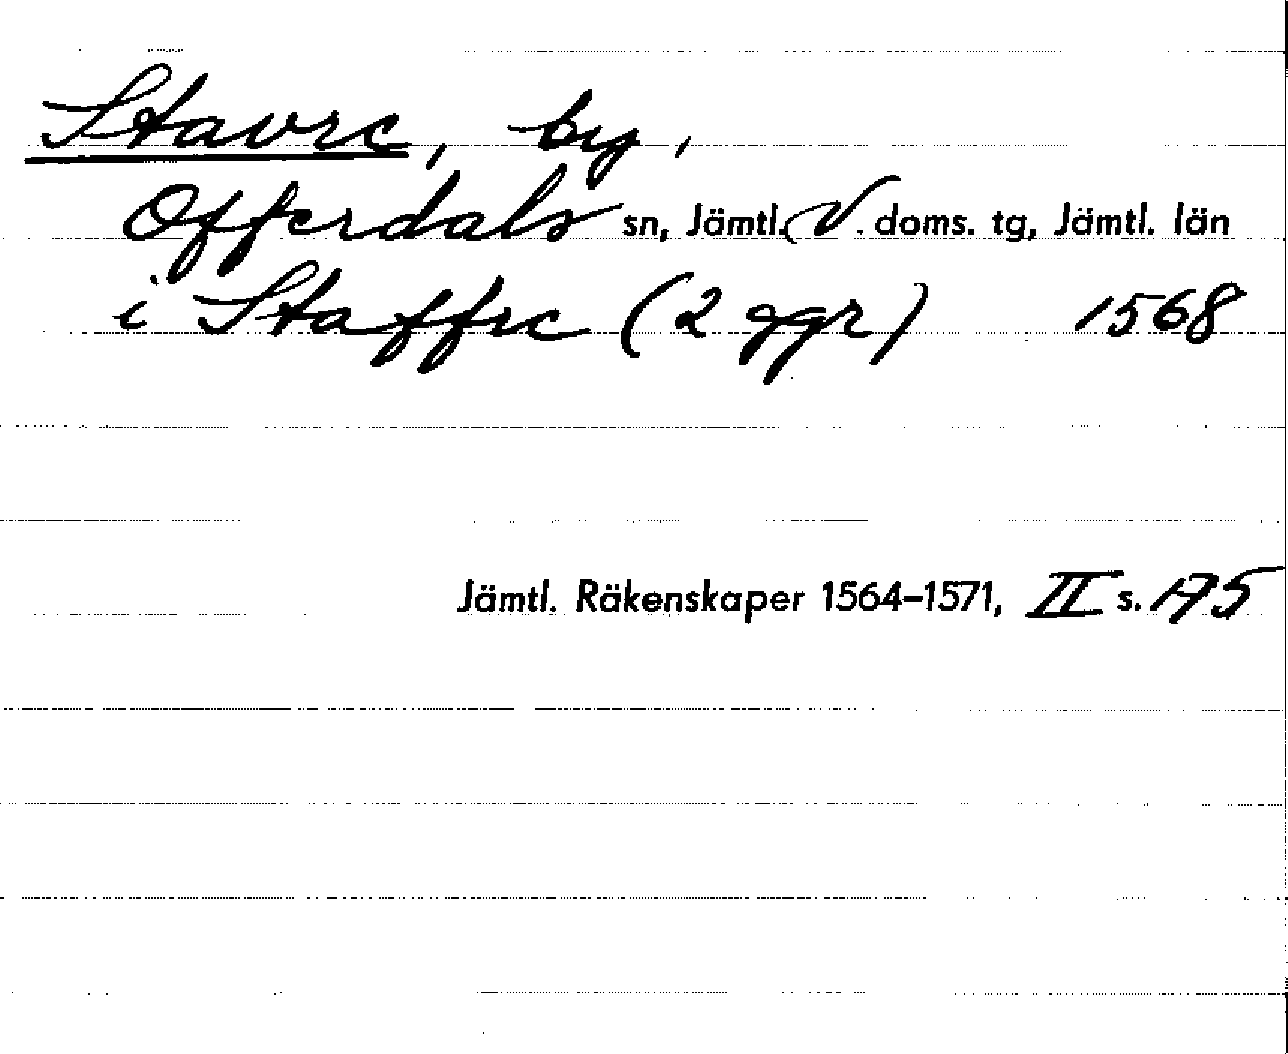 Stavre, by,
Offerdals sn, Jämtl. V. doms. tg, Jämtl. län
i Staffre (2 ggr) 1568
Jämtl. Räkenskaper 1564–1571, II s. 175